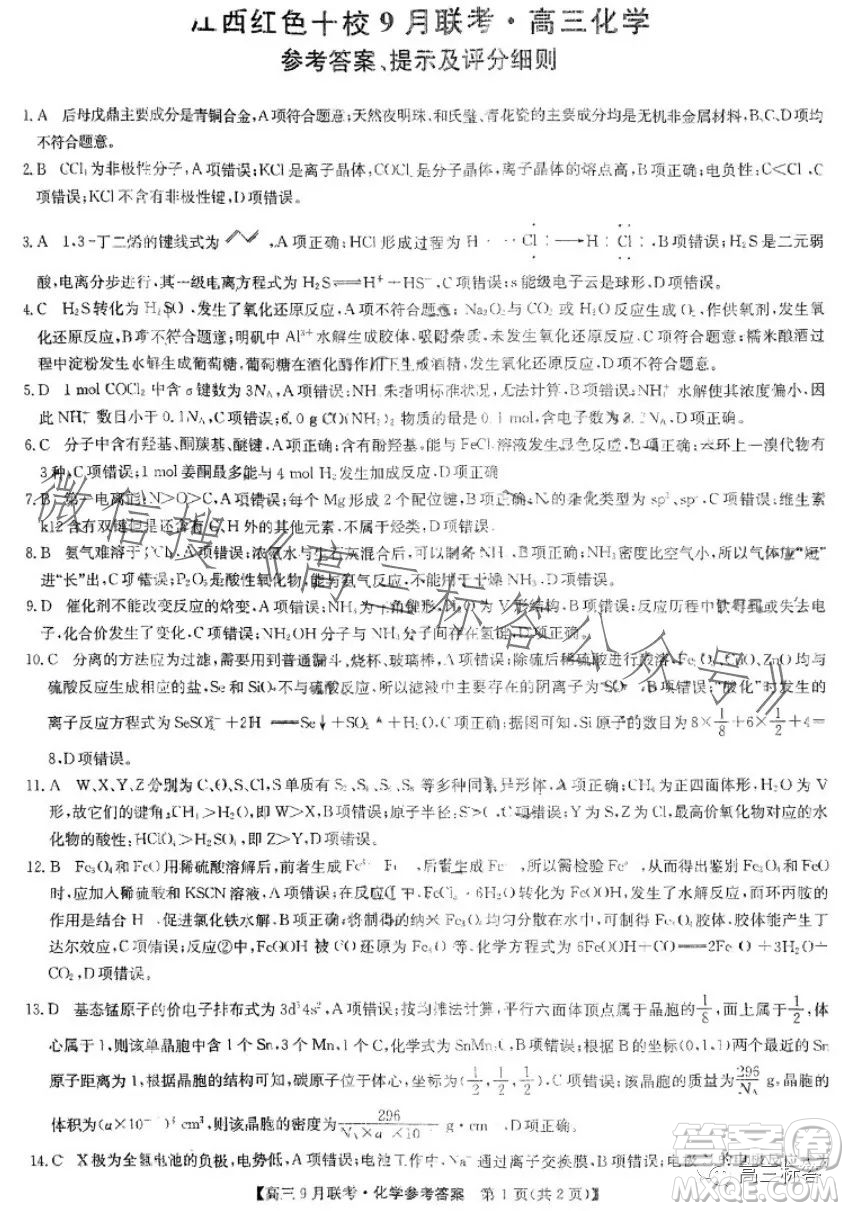 江西红色十校9月联考·高三化学
参考答案、提示及评分细则
1. A 后母戊鼎主要成分是青铜合金,A项符合题意;天然夜明珠、和氏璧、青花瓷的主要成分均是无机非金属材料,B、C、D项均
不符合题意。
2. B CCl₄为非极性分子,A项错误;KCl是离子晶体,COCl₂是分子晶体,离子晶体的熔点高,B项正确;电负性:C<Cl,C
项错误;KCl不含有非极性键,D项错误。
3. A 1,3-丁二烯的键线式为 ,A项正确;HCl形成过程为 H· ·Cl: ⟶ H :Cl: ,B项错误;H₂S是二元弱
酸,电离分步进行,其一级电离方程式为H₂S⇌H⁺+HS⁻,C项错误;s能级电子云是球形,D项错误。
4. C H₂S转化为H₂SO 发生了氧化还原反应,A项不符合题意;Na₂O₂与CO₂或H₂O反应生成O₂,作供氧剂,发生氧
化还原反应,B项不符合题意;明矾中Al³⁺水解生成胶体,吸附杂质,未发生氧化还原反应,C项符合题意;糯米酿酒过
程中淀粉发生水解生成葡萄糖,葡萄糖在酒化酶作用下生成酒精,发生氧化还原反应,D项不符合题意。
5. D 1 mol COCl₂中含σ键数为3Nₐ,A项错误;NH₃未指明标准状况,无法计算,B项错误;NH₄⁺水解使其浓度减小,因
此NH₄⁺数目小于0.1Nₐ,C项错误;6.0 g CO(NH₂)₂物质的量是0.1 mol,含电子数为3.2Nₐ,D项正确。
6. C 分子中含有羟基、酮羰基、醚键,A项正确;含有酚羟基,能与FeCl₃溶液发生显色反应,B项正确;苯环上一溴代物有
3种,C项错误;1 mol姜酮最多能与4 mol H₂发生加成反应,D项正确。
7. B 第一电离能:N>O>C,A项错误;每个Mg形成2个配位键,B项正确;N的杂化类型为sp²、sp³,C项错误;维生素
k12含有双键但是还含有C、H外的其他元素,不属于烃类,D项错误。
8. B 氨气难溶于CCl₄,A项错误;浓氨水与生石灰混合后,可以制备NH₃,B项正确;氨气密度比空气小,所以气体应“短”
进“长”出,C项错误;P₂O₅是酸性氧化物,能与氨气反应,不能用于干燥NH₃,D项错误。
9. D 催化剂不能改变反应的焓变,A项错误;NH₃为三角锥形,B项错误;反应历程中铁得到或失去电
子,化合价发生了变化,C项错误;NH₂OH分子与NH₃分子间存在氢键,D项正确。
10. C 分离的方法应为过滤,需要用到普通漏斗、烧杯、玻璃棒,A项错误;除硫后稀硫酸进行酸溶,Fe₂O₃、CuO、ZnO均与
硫酸反应生成相应的盐,Se和SiO₂不与硫酸反应,所以滤液中主要存在的阴离子为SO₄²⁻,B项错误;“酸化”时发生的
离子反应方程式为SeSO₃²⁻+2H⁺══Se↓+SO₂↑+H₂O,C项正确;据图可知,Si原子的数目为8×1/8+6×1/2+4=
8,D项错误。
11. A W、X、Y、Z分别为C、O、S、Cl,S单质有S₂、S₄、S₆、S₈等多种同素异形体,A项正确;CH₄为正四面体形,H₂O为V
形,故它们的键角:CH₄>H₂O,即W>X,B项错误;原子半径:S>Cl>O,C项错误;Y为S,Z为Cl,最高价氧化物对应的水
化物的酸性:HClO₄>H₂SO₄,即Z>Y,D项错误。
12. B Fe₃O₄和FeO用稀硫酸溶解后,前者生成Fe³⁺、Fe²⁺,后者生成Fe²⁺,所以需检验Fe³⁺,故检验Fe₃O₄和FeO
时,应加入稀硫酸和KSCN溶液,A项错误;在反应①中,FeCl₃·6H₂O转化为FeOOH,发生了水解反应,而环丙胺的
作用是结合H⁺,促进氯化铁水解,B项正确;将制得的纳米Fe₃O₄均匀分散在水中,可制得Fe₃O₄胶体,胶体能产生丁
达尔效应,C项错误;反应②中,FeOOH被CO还原为Fe₃O₄等,化学方程式为6FeOOH+CO══2Fe₃O₄+3H₂O+
CO₂,D项错误。
13. D 基态锰原子的价电子排布式为3d⁵4s²,A项错误;按均摊法计算,平行六面体顶点属于晶胞的1/8,面上属于1/2,体
心属于1,则该单晶胞中含1个Sn,3个Mn,1个C,化学式为SnMn₃C,B项错误;根据B的坐标(0,1,1)两个最近的Sn
原子距离为1,根据晶胞的结构可知,碳原子位于体心,坐标为(1/2,1/2,1/2),C项错误;该晶胞的质量为296/Nₐ g,晶胞的
体积为(a×10 )³ cm³,则该晶胞的密度为296/(Nₐ×a ×10 ) g·cm⁻³,D项正确。
14. C X极为全氢电池的负极,电势低,A项错误;电池工作中,Na⁺通过离子交换膜,B项错误;
【高三9月联考·化学参考答案 第1页(共2页)】
微信搜《高三标答公众号》
答案卷
高三标答